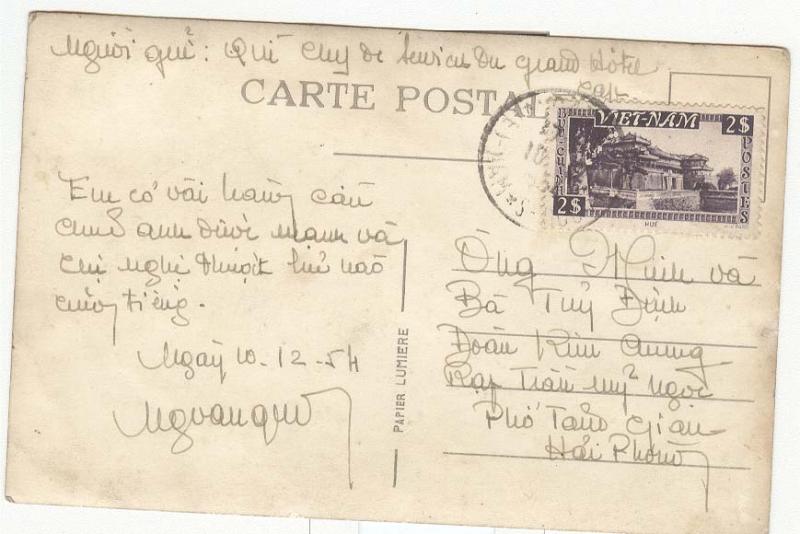 Người gửi: Quí Chef de Service du Grand Hôtel
Cap
CARTE POSTALE
VIET-NAM
2$
POSTES
2$
HUẾ
Em có vài hàng cầu
chúc anh được mạnh và
chị nghệ thuật lúc nào
cũng tiếng.
Ngày 10-12-54
Ngvanquí
PAPIER LUMIERE
Ông Minh và
Bà Tuý Định
Đoàn Kim Chung
Rạp Tiàn mỹ ngôi
Phố Tám Gian
Hải Phòng